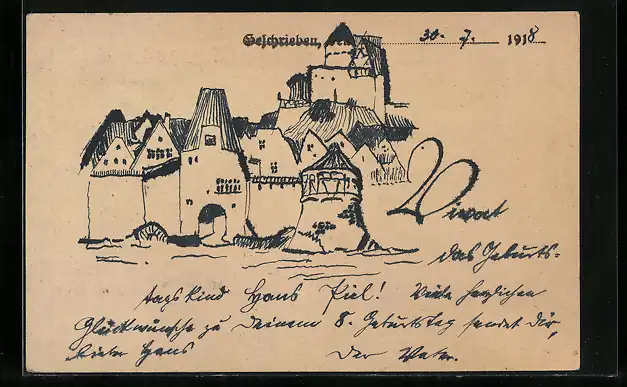 Geschrieben, den 30. 7. 1918
Vivat
das Geburts-
tagskind Hans Piel! Viele herzlichen
Glückwünsche zu Deinem 8. Geburtstag sendet dir,
lieber Hans
Der Vater.